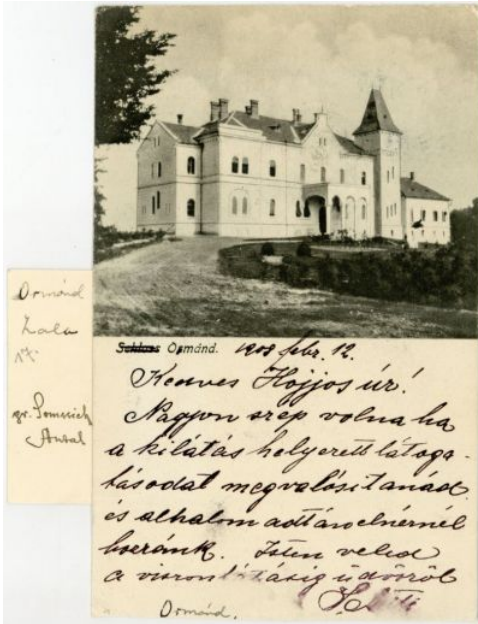 Ormánd
Zala
17.
gr. Somssich
Antal
Schloss Ormánd. 1908 febr. 12.
Kedves Hojjos úr!
Nagyon szép volna ha
a kilátás helyett látoga-
tásodat megvalósitanád
és alkalom adtán elnéznél
hozzánk. Isten veled
a viszontlátásig üdvözöl
Ormánd.